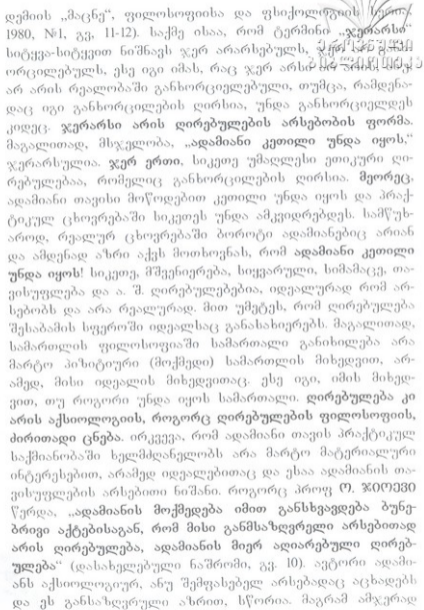 დემიის „მაცნე", ფილოსოფიისა და ფსიქოლოგიის სერია,
1980, №1, გვ. 11-12). საქმე ისაა, რომ ტერმინი „ჯერარსი"
სიტყვა-სიტყვით ნიშნავს ჯერ არარსებულს, ჯერ
ორციელებულს, ესე იგი იმას, რაც ჯერ არსი
არ არის რეალობაში განხორციელებული, თუმცა, რამდენა-
დაც იგი განხორციელების ღირსია, უნდა განხორციელდეს
კიდეც. ჯერარსი არის ღირებულების არსებობის ფორმა.
მაგალითად, მსჯელობა, „ადამიანი კეთილი უნდა იყოს,"
ჯერარსულია. ჯერ ერთი, სიკეთე უმაღლესი ეთიკური ღი-
რებულებაა, რომელიც განხორციელების ღირსია. მეორეც,
ადამიანი თავისი მოწოდებით კეთილი უნდა იყოს და პრაქ-
ტიკულ ცხოვრებაში სიკეთეს უნდა ამკვიდრებდეს. სამწუხ-
აროდ, რეალურ ცხოვრებაში ბოროტი ადამიანებიც არიან
და ამდენად აზრი აქვს მოთხოვნას, რომ ადამიანი კეთილი
უნდა იყოს! სიკეთე, მშვენიერება, სიყვარული, სიმამაცე, თა-
ვისუფლება და ა. შ. ღირებულებებია, იდეალურად რომ არ-
სებობს და არა რეალურად. მით უმეტეს, რომ ღირებულება
შესაბამის სფეროში იდეალსაც განასახიერებს. მაგალითად,
სამართლის ფილოსოფიაში სამართალი განიხილება არა
მარტო პოზიტიური (მოქმედი) სამართლის მიხედვით, არ-
ამედ, მისი იდეალის მიხედვითაც. ესე იგი, იმის მიხედ-
ვით, თუ როგორი უნდა იყოს სამართალი. ღირებულება კი
არის აქსიოლოგიის, როგორც ღირებულების ფილოსოფიის,
ძირითადი ცნება. ირკვევა, რომ ადამიანი თავის პრაქტიკულ
საქმიანობაში ხელმძღვანელობს არა მარტო მატერიალური
ინტერესებით, არამედ იდეალებითაც და ესაა ადამიანის თა-
ვისუფლების არსებითი ნიშანი. როგორც პროფ. ო. ჯიოევი
წერდა, „ადამიანის მოქმედება იმით განსხვავდება ბუნე-
ბრივი აქტებისაგან, რომ მისი განმსაზღვრელი არსებითად
არის ღირებულება, ადამიანის მიერ აღიარებული ღირებ-
ულება" (დასახელებული ნაშრომი, გვ. 10). ავტორი ადამი-
ანს აქსიოლოგიურ, ანუ შემფასებელ არსებადაც აცხადებს
და ეს განსაზღვრული აზრით, სწორია. მაგრამ ამჯერად